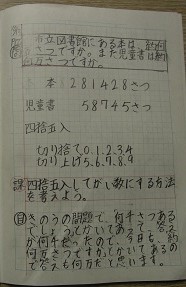 市立図書館にある本は、約何
万さつですか。また児童書は約
何万さつですか。
本 281428さつ
児童書 58745さつ
四捨五入
切り捨て0.1.2.3.4
切り上げ5.6.7.8.9
課 四捨五入してがい数にする方法
を考えよう。
自 きのうの問題で、何千さつある
でしょうとかいてあって、答え
が何千だったので、今日も、約
何万さつですか。とかいてあるの
で答えも何万だと思います。